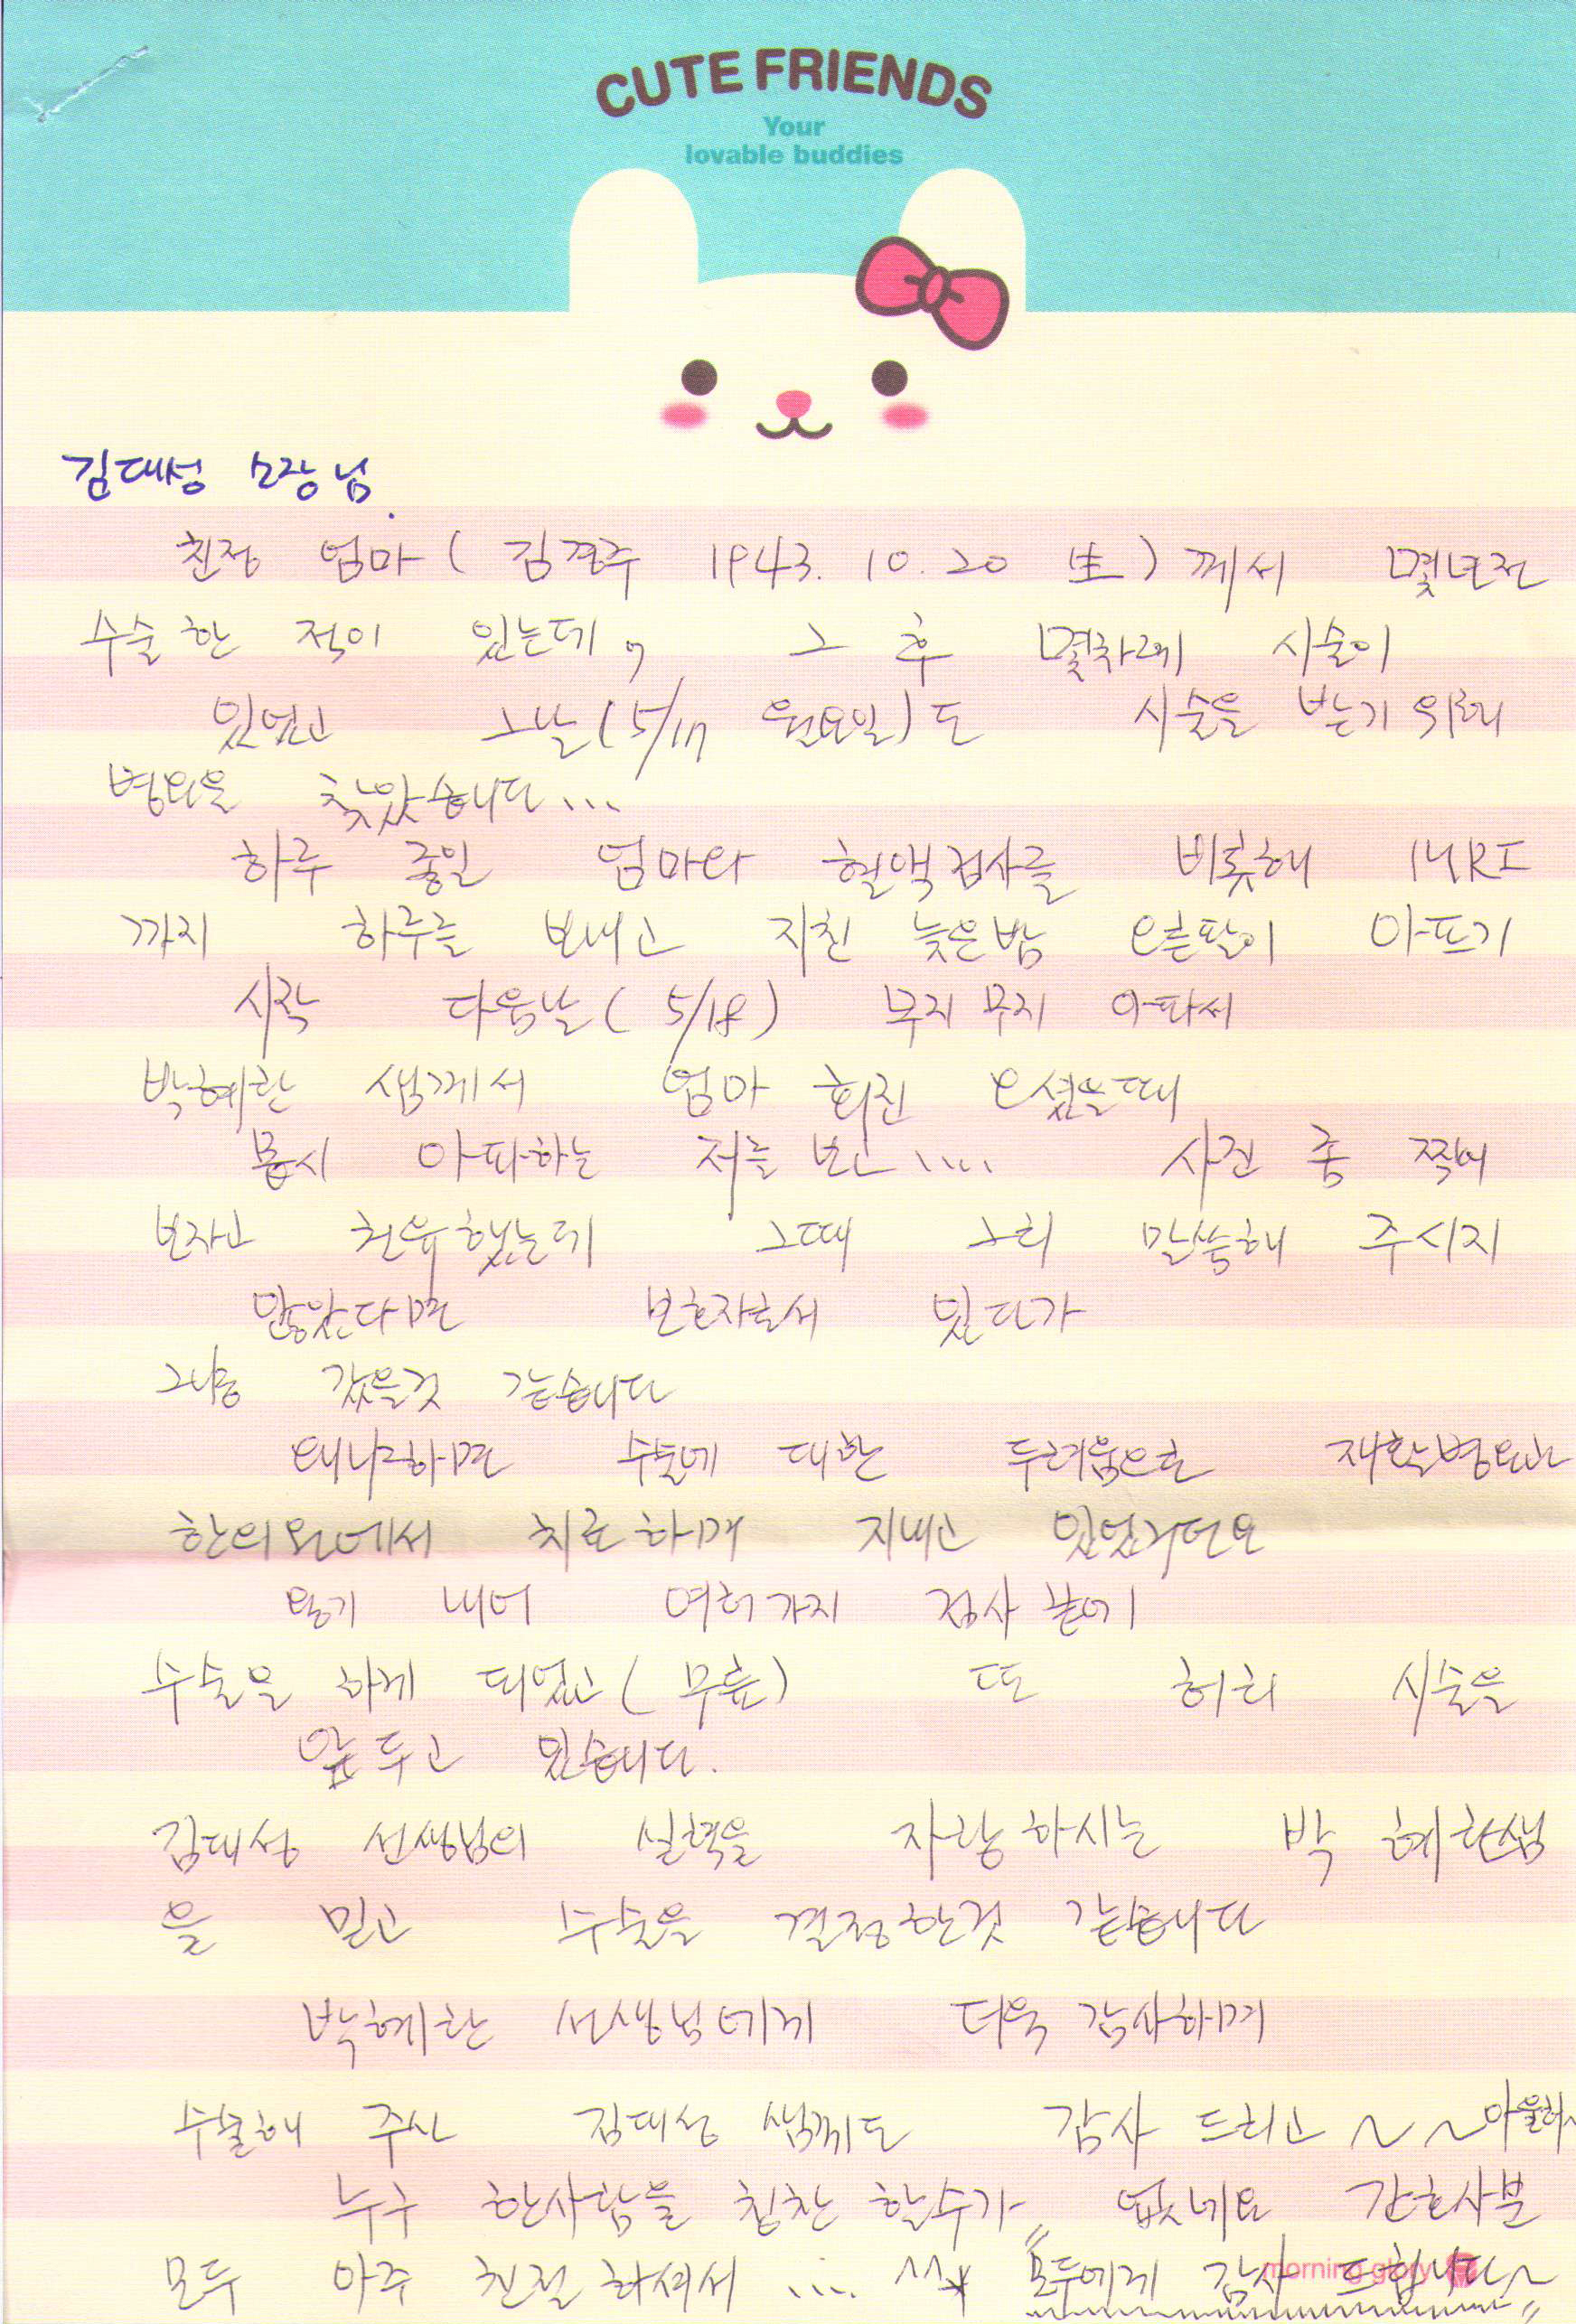 CUTE FRIENDS
Your
lovable buddies
김대성 소장님.
친정 엄마( 김경주 1943. 10. 20 生) 께서 몇년전
수술한 적이 있는데, 그 후 몇차례 시술이
있었고 그날(5/17 월요일)도 시술을 받기 위해
병원을 찾았습니다...
하루 종일 엄마와 혈액검사를 비롯해 MRI
까지 하루를 보내고 지친 늦은밤 오른팔이 아프기
시작 다음날( 5/18) 무지무지 아파서
박혜란 샘께서 엄마 회진 오셨을때
몹시 아파하는 저를 보고.... 사진 좀 찍어
보자고 권유했는데 그때 그리 말씀해 주시지
않았다면 보호자로서 있다가
그냥 갔을것 같습니다
왜냐하면 수술에 대한 두려움으로 재활병원과
한의원에서 치료하며 지내고 있었거던요
용기 내어 여러가지 검사 끝에
수술을 하게 되었고( 무릎) 또 허리 시술을
앞두고 있습니다.
김대성 선생님의 실력을 자랑하시는 박 혜란샘
을 믿고 수술을 결정한것 같습니다
박혜란 선생님에게 더욱 감사하며
수술해 주신 김대성 샘께도 감사 드리고 ~ ~아울러
누구 한사람을 칭찬 할수가 없네요 간호사분
모두 아주 친절하셔서 .... ^^* "모두에게 감사 드립니다~"
morning glory